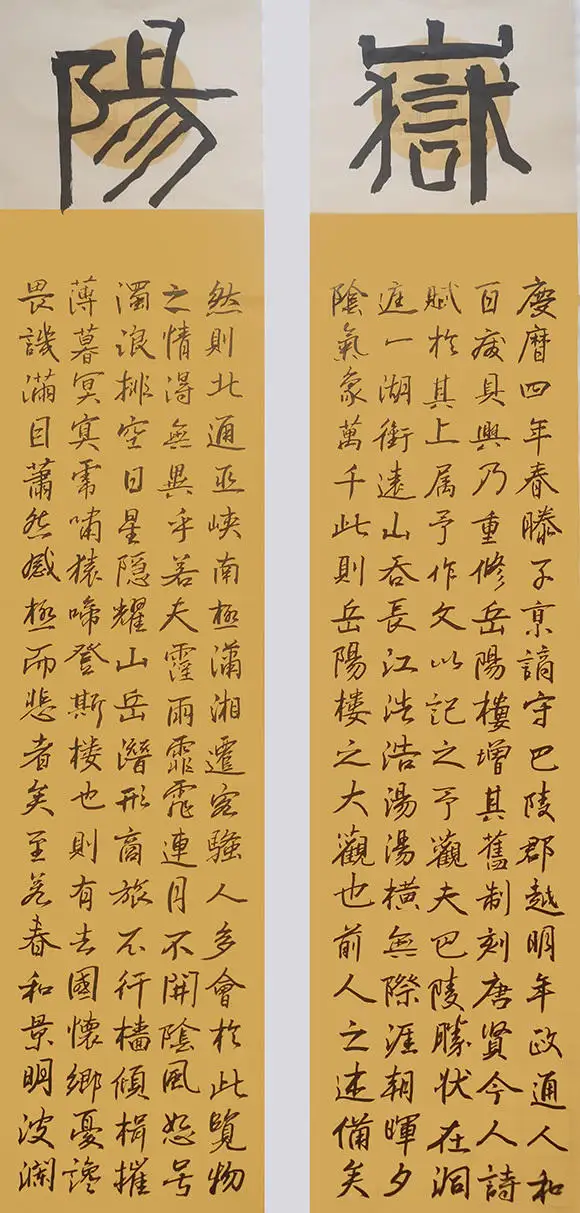 嶽
慶曆四年春滕子京謫守巴陵郡越明年政通人和
百廢具興乃重修岳陽樓增其舊制刻唐賢今人詩
賦於其上属予作文以記之予觀夫巴陵勝状在洞
庭一湖銜遠山吞長江浩浩湯湯橫無際涯朝暉夕
陰氣象萬千此則岳陽楼之大觀也前人之述備矣
陽
然則北通巫峽南極瀟湘遷客騷人多會於此覽物
之情得無異乎若夫霪雨霏霏連月不開陰風怒号
濁浪排空日星隐耀山岳潛形商旅不行檣傾楫摧
薄暮冥冥虎嘯猿啼登斯楼也則有去國懷鄉憂讒
畏譏滿目蕭然感極而悲者矣至若春和景明波瀾